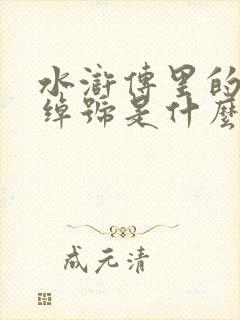 水滸傳里的
綽號是什麼
成元清